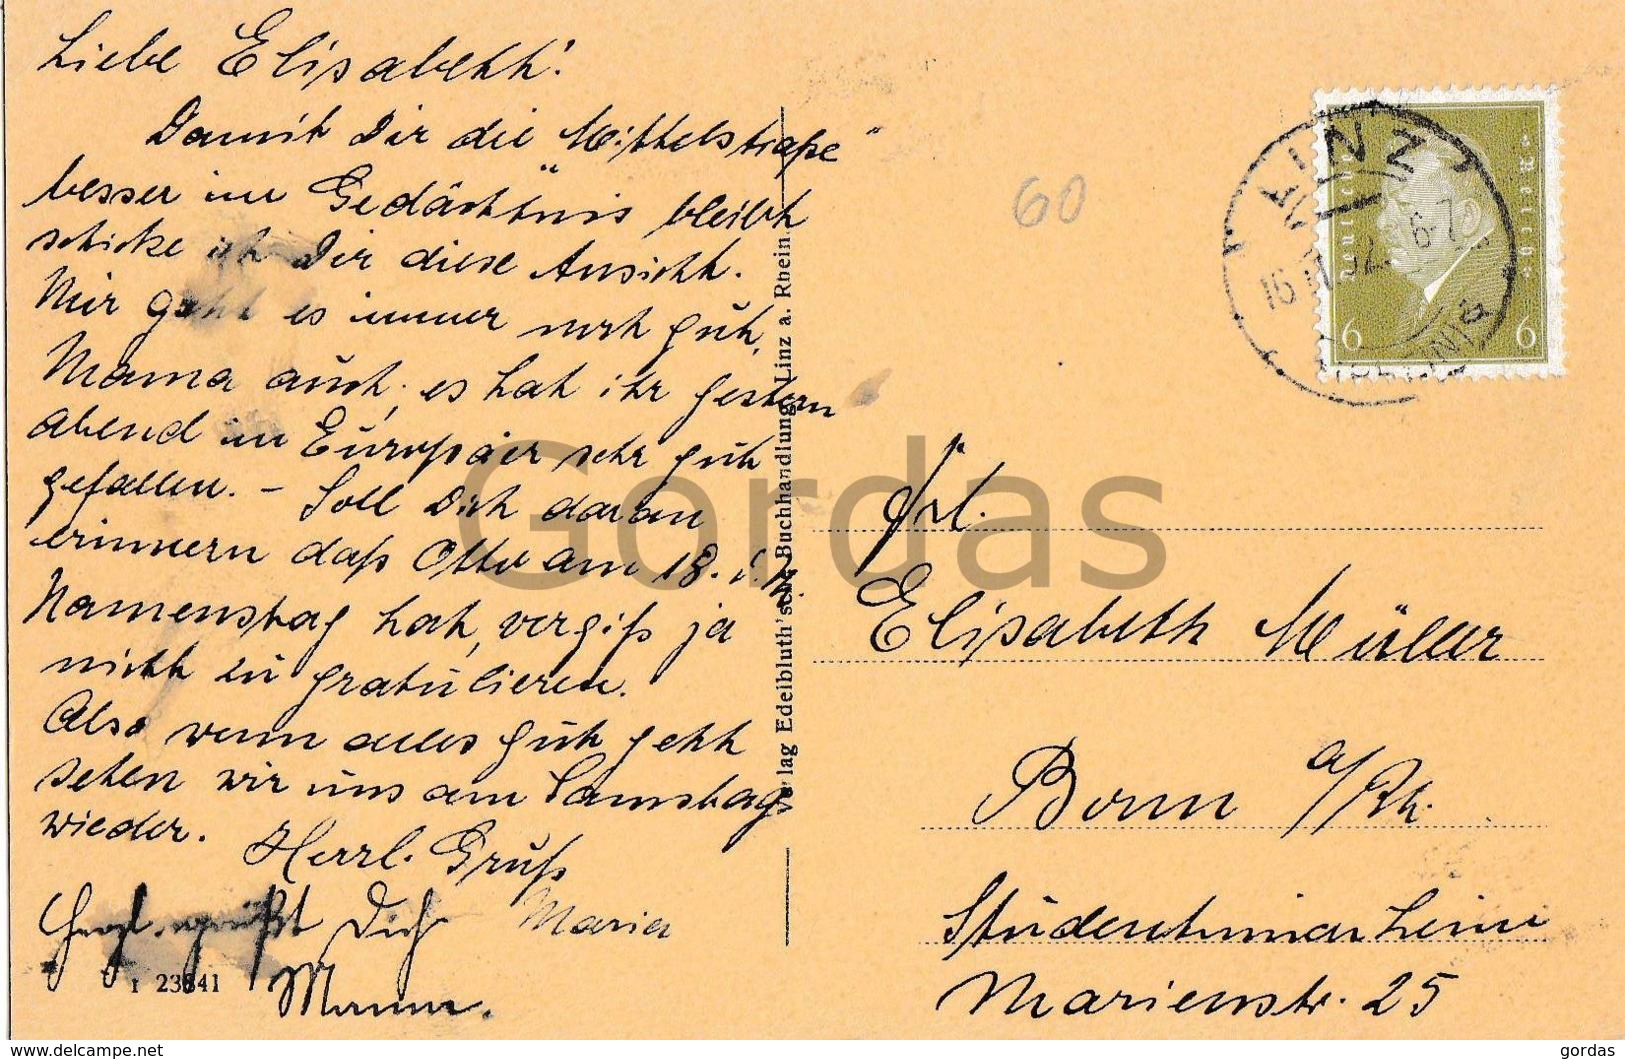 Liebe Elisabeth!
Damit Dir die „Mittelstraße“
besser im Gedächtnis bleibt
schicke ich Dir diese Ansicht.
Mir geht es immer noch gut,
Mama auch, es hat ihr gestern
abend im Europäer sehr gut
gefallen. – Soll Dich daran
erinnern daß Otto am 18. d. M.
Namenstag hat, vergiß ja
nicht zu gratulieren.
Also wenn alles gut geht
sehen wir uns am Samstag
wieder.
Herzl. Gruß
Maria
Herzl. grüßt Dich
I 23841
Verlag Edelbluth'sche Buchhandlung Linz a. Rhein.
60
LINZ
16
6-7
Deutsches Reich
6 6
Frl.
Elisabeth Müller
Bonn a/Rh.
Studentinnenheim
Marienstr. 25
Gordas
www.delcampe.net
gordas